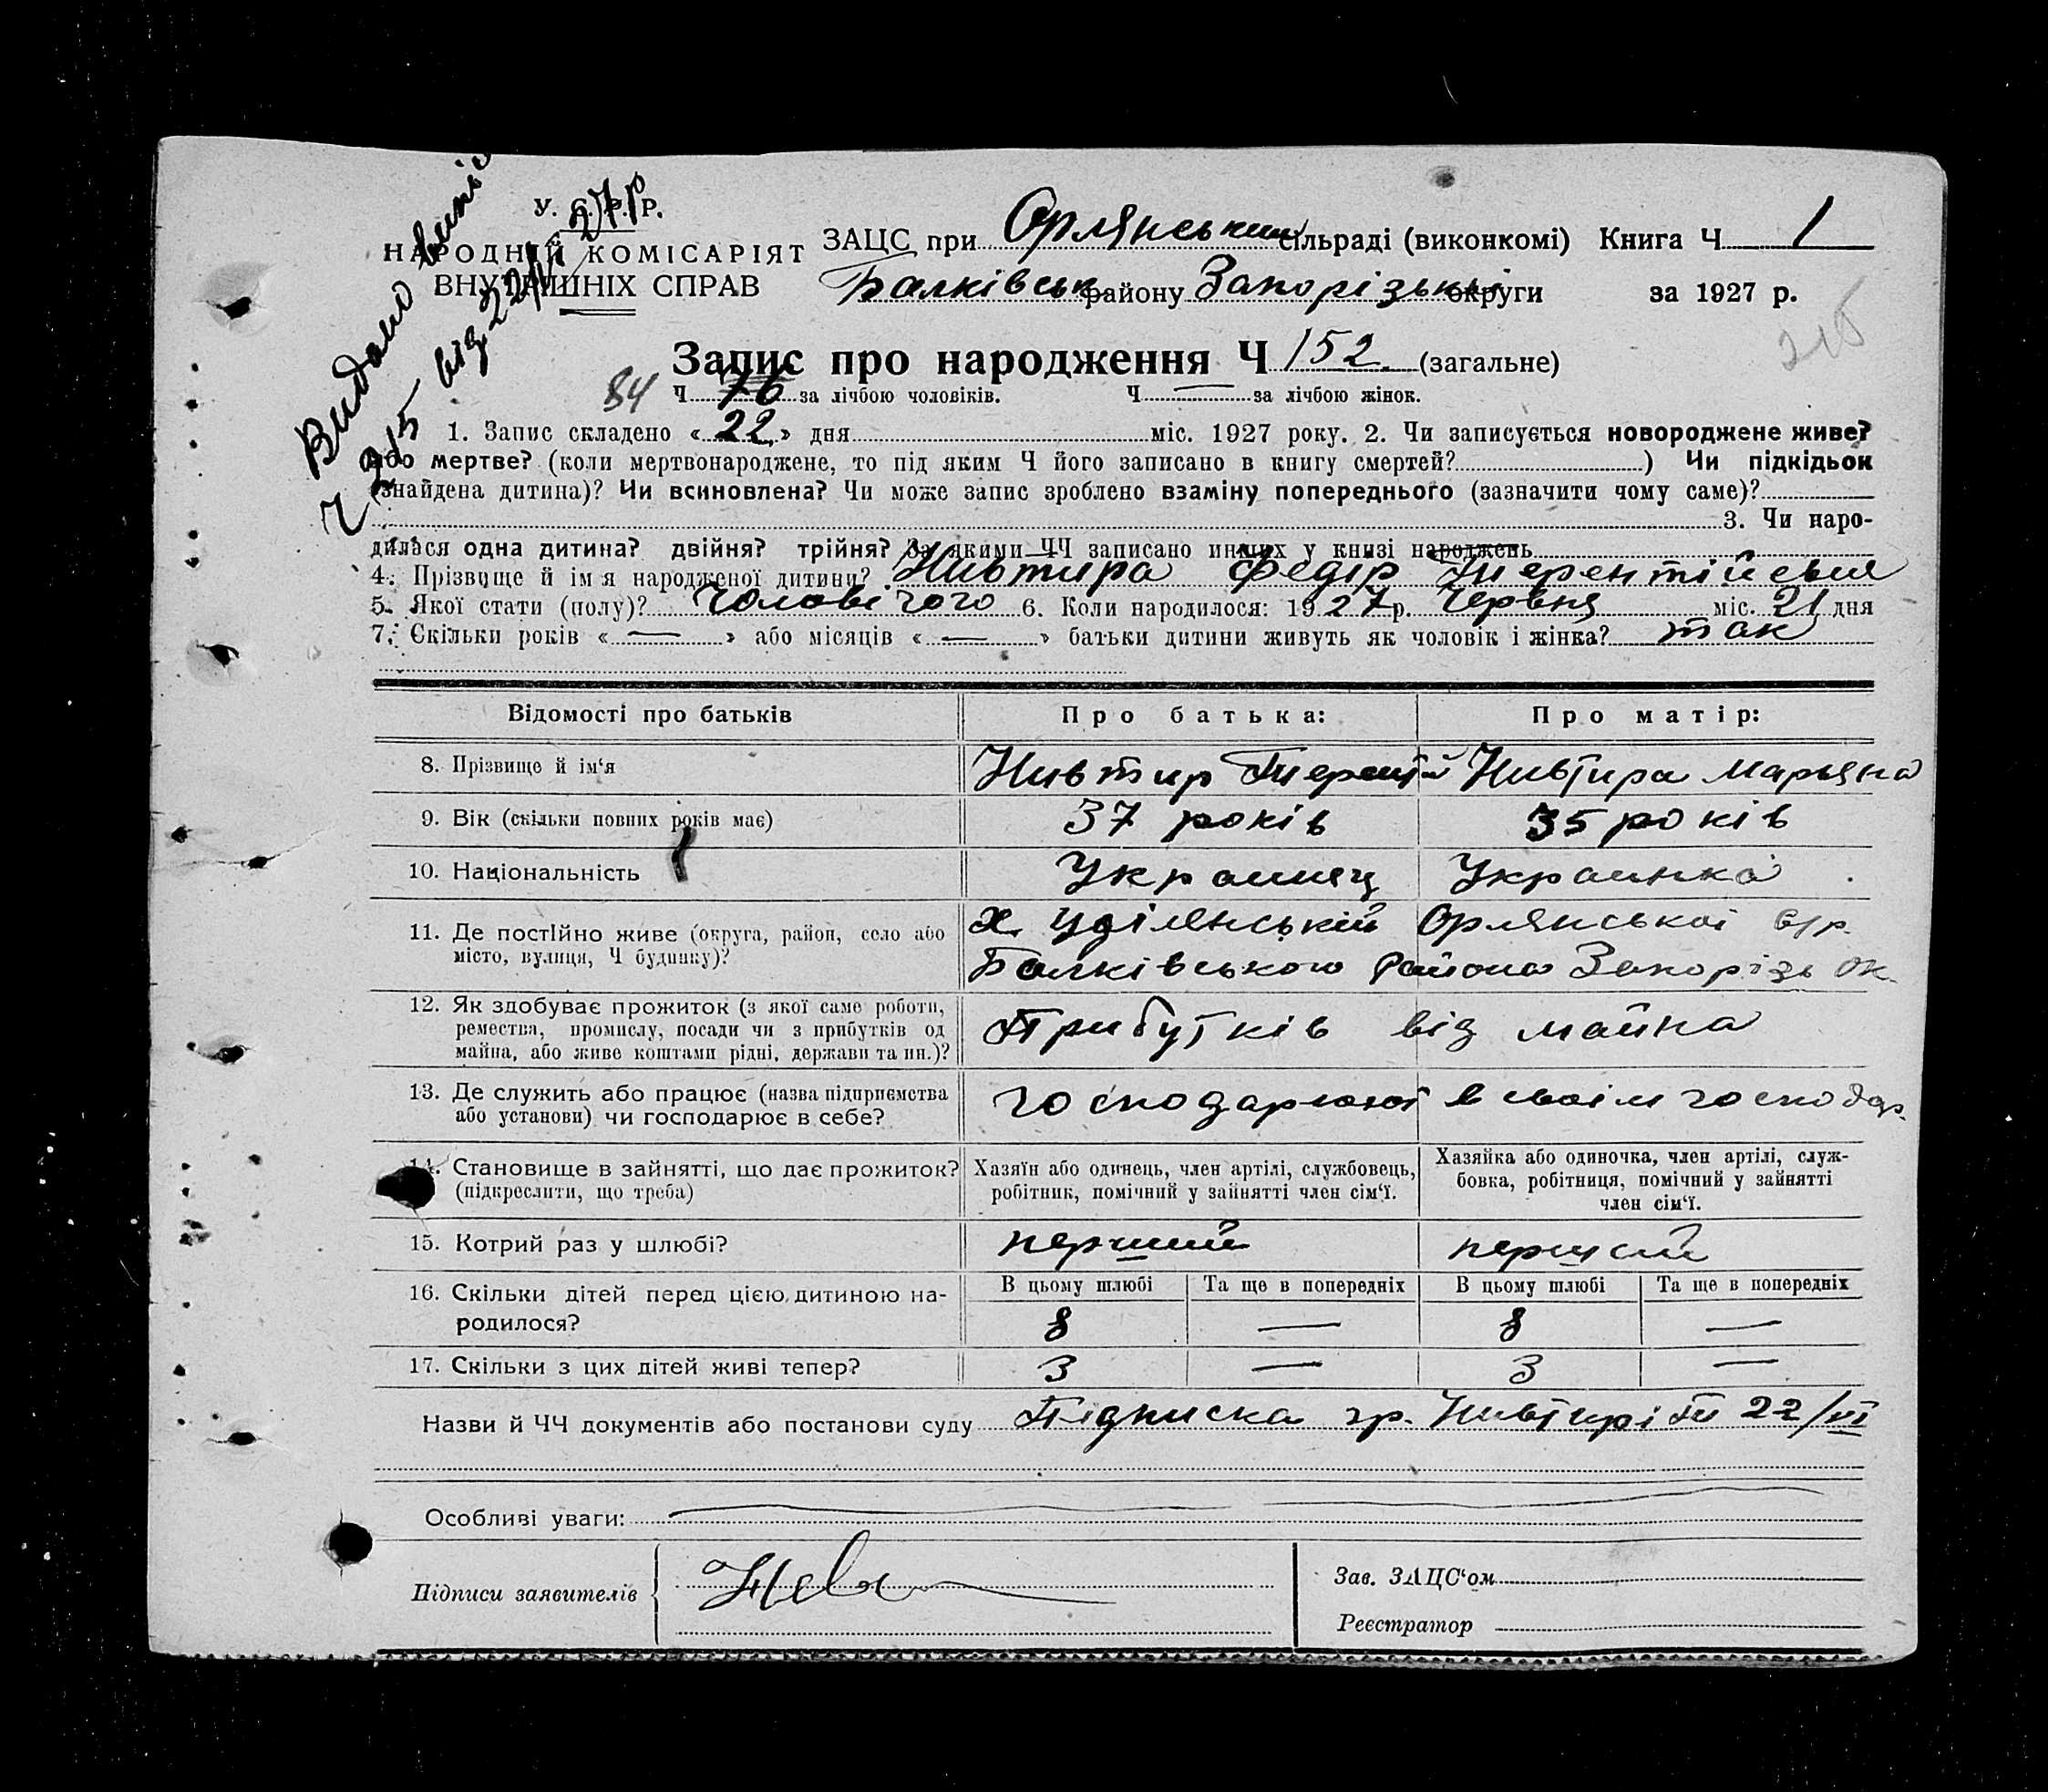 Видано випис
Ч 215 від 22/VI 27 р
У. С. Р. Р.
НАРОДНІЙ КОМІСАРІЯТ
ВНУТРІШНІХ СПРАВ
ЗАЦС при Орлянський сільраді (виконкомі) Книга Ч 1
Балківськ району Запорізької округи за 1927 р.
215
Запис про народження Ч 152. (загальне)
84 Ч 76 за лічбою чоловіків. Ч — за лічбою жінок.
1. Запис складено «22» дня міс. 1927 року. 2. Чи записується новороджене живе?
або мертве? (коли мертвонароджене, то під яким Ч його записано в книгу смертей? ) Чи підкідьок
(знайдена дитина)? Чи всиновлена? Чи може запис зроблено взаміну попереднього (зазначити чому саме)?
3. Чи наро-
дилася одна дитина? двійня? трійня? За якими ЧЧ записано инших у книзі народжень
4. Прізвище й ім'я народженої дитини? Нивтира Федір Терентійевич
5. Якої стати (полу)? Чоловічого 6. Коли народилося: 1927 р. Червня міс. 21 дня
7. Скільки років «—» або місяців «—» батьки дитини живуть як чоловік і жінка? так
Відомості про батьків Про батька: Про матір:
8. Прізвище й ім'я Нивтир Терентій Нивтира Марьяна
9. Вік (скільки повних років має) 37 років 35 років
10. Національність Украинец Украинка
11. Де постійно живе (округа, район, село або
місто, вулиця, Ч будинку)?
х. Уділянський Орлянської с/р.
Балківського района Запорізь ок.
12. Як здобуває прожиток (з якої саме роботи,
ремества, промислу, посади чи з прибутків од
майна, або живе коштами рідні, держави та ин.)?
Прибутків від майна
13. Де служить або працює (назва підприємства
або установи) чи господарює в себе?
господарюют в своім господар.
14. Становище в зайнятті, що дає прожиток?
(підкреслити, що треба)
Хазяїн або одинець, член артілі, службовець,
робітник, помічний у зайнятті член сім'ї.
Хазяйка або одиночка, член артілі, служ-
бовка, робітниця, помічний у зайнятті
член сім'ї.
15. Котрий раз у шлюбі? перший перший
16. Скільки дітей перед цією дитиною на-
родилося?
В цьому шлюбі Та ще в попередніх В цьому шлюбі Та ще в попередніх
8 — 8 —
17. Скільки з цих дітей живі тепер? 3 — 3 —
Назви й ЧЧ документів або постанови суду Підписка гр. Нивтирі Т 22/VI
Особливі уваги:
Підписи заявителів
Зав. ЗАЦС'ом
Реєстратор